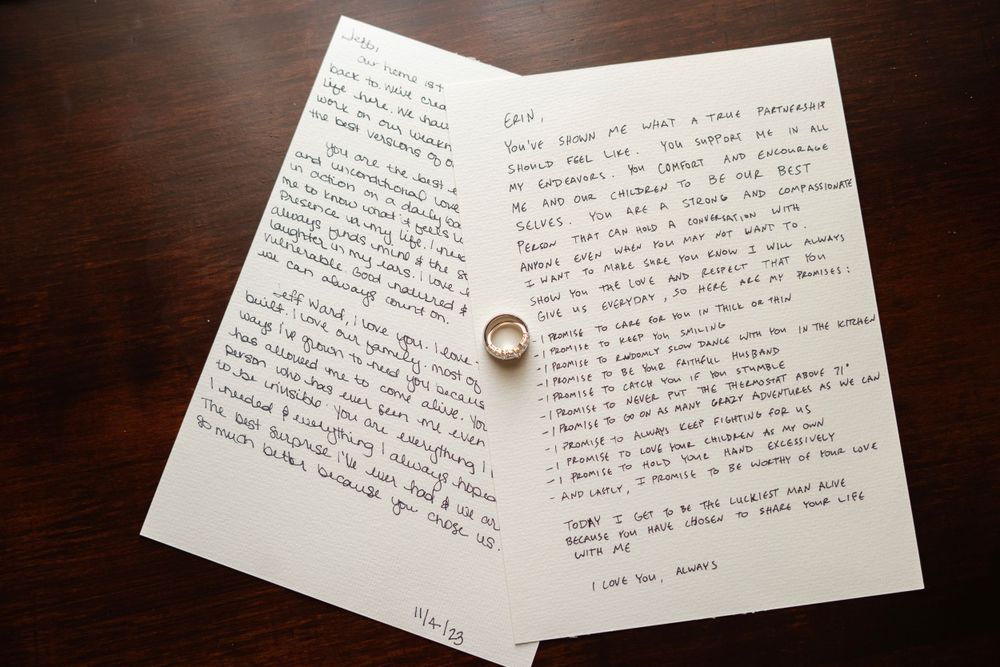 Jeff,
our home is
back to. We've crea
life here. We hav
work on our weakn
the best versions of o
You are the best
and unconditional love
in action on a daily ba
me to know what it feels li
Presence in my life. I nee
always finds mine & the s
laughter in my ears. I love
vulnerable. Good natured &
we can always count on.
Jeff Ward, i love you. I love
built. I love our family. most of
ways I've grown to need you becaus
has allowed me to come alive. You
person who has ever seen me even
to be invisible. You are everything I
I needed & everything I always hoped
The best surprise I've ever had & we ar
so much better because you chose us.
11/4/23
ERIN,
YOU'VE SHOWN ME WHAT A TRUE PARTNERSHIP
SHOULD FEEL LIKE. YOU SUPPORT ME IN ALL
MY ENDEAVORS. YOU COMFORT AND ENCOURAGE
ME AND OUR CHILDREN TO BE OUR BEST
SELVES. YOU ARE A STRONG AND COMPASSIONATE
PERSON THAT CAN HOLD A CONVERSATION WITH
ANYONE EVEN WHEN YOU MAY NOT WANT TO.
I WANT TO MAKE SURE YOU KNOW I WILL ALWAYS
SHOW YOU THE LOVE AND RESPECT THAT YOU
GIVE US EVERYDAY, SO HERE ARE MY PROMISES:
- I PROMISE TO CARE FOR YOU IN THICK OR THIN
- I PROMISE TO KEEP YOU SMILING
- I PROMISE TO RANDOMLY SLOW DANCE WITH YOU IN THE KITCHEN
- I PROMISE TO BE YOUR FAITHFUL HUSBAND
- I PROMISE TO CATCH YOU IF YOU STUMBLE
- I PROMISE TO NEVER PUT THE THERMOSTAT ABOVE 71°
- I PROMISE TO GO ON AS MANY CRAZY ADVENTURES AS WE CAN
- I PROMISE TO ALWAYS KEEP FIGHTING FOR US
- I PROMISE TO LOVE YOUR CHILDREN AS MY OWN
- I PROMISE TO HOLD YOUR HAND EXCESSIVELY
- AND LASTLY, I PROMISE TO BE WORTHY OF YOUR LOVE
TODAY I GET TO BE THE LUCKIEST MAN ALIVE
BECAUSE YOU HAVE CHOSEN TO SHARE YOUR LIFE
WITH ME
I LOVE YOU, ALWAYS